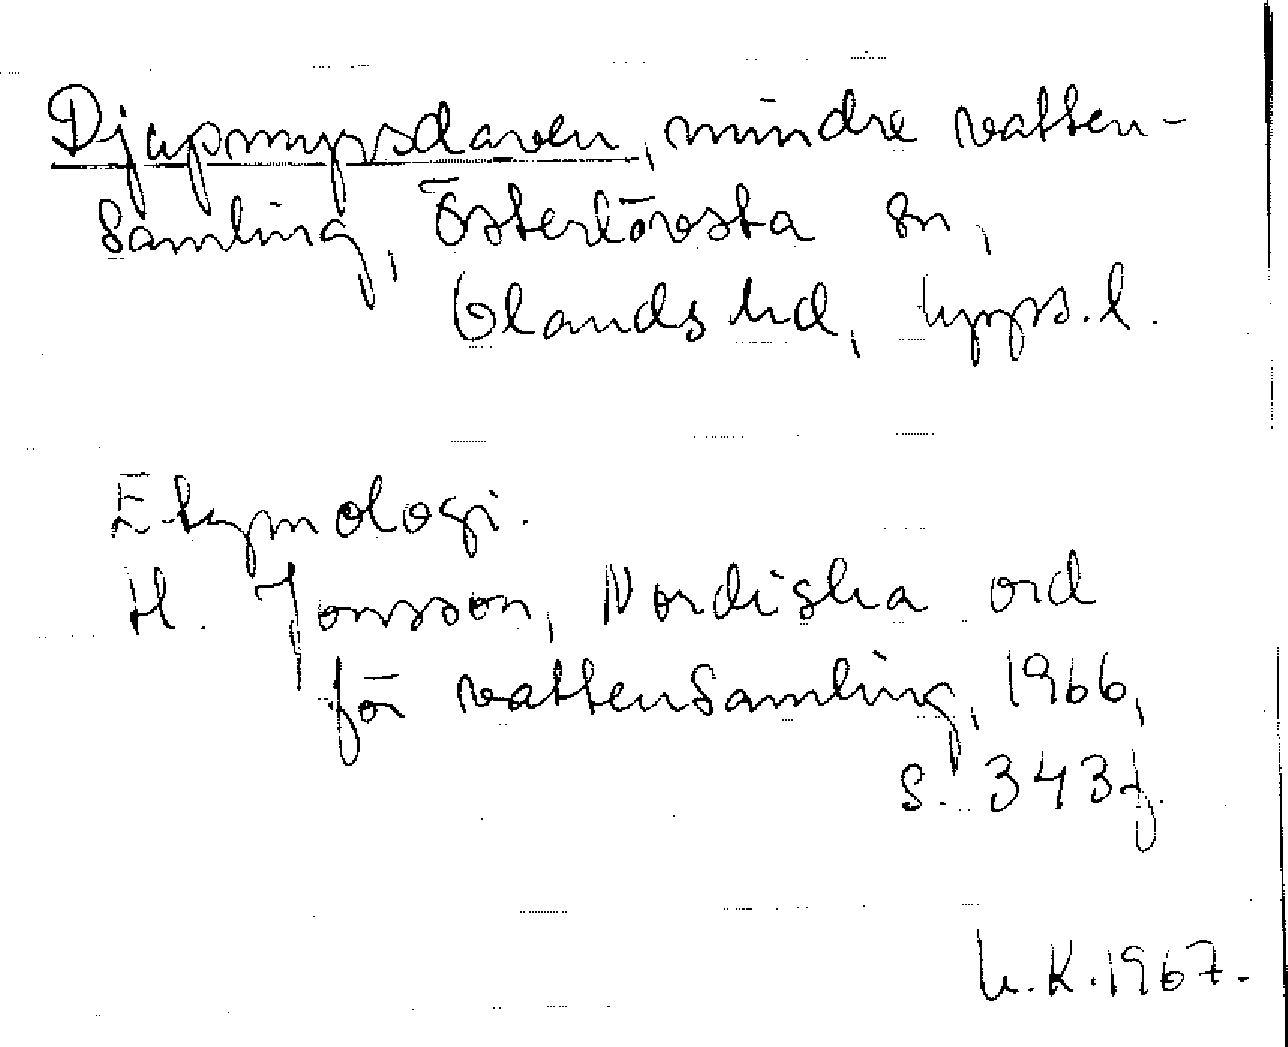 Djupmyrsdaven, mindre vatten-
samling, Österlövsta sn,
Olands hd, Upps.l.
Etymologi.
H. Jonsson, Nordiska ord
för vattensamling, 1966,
s. 343f.
U.K. 1967.